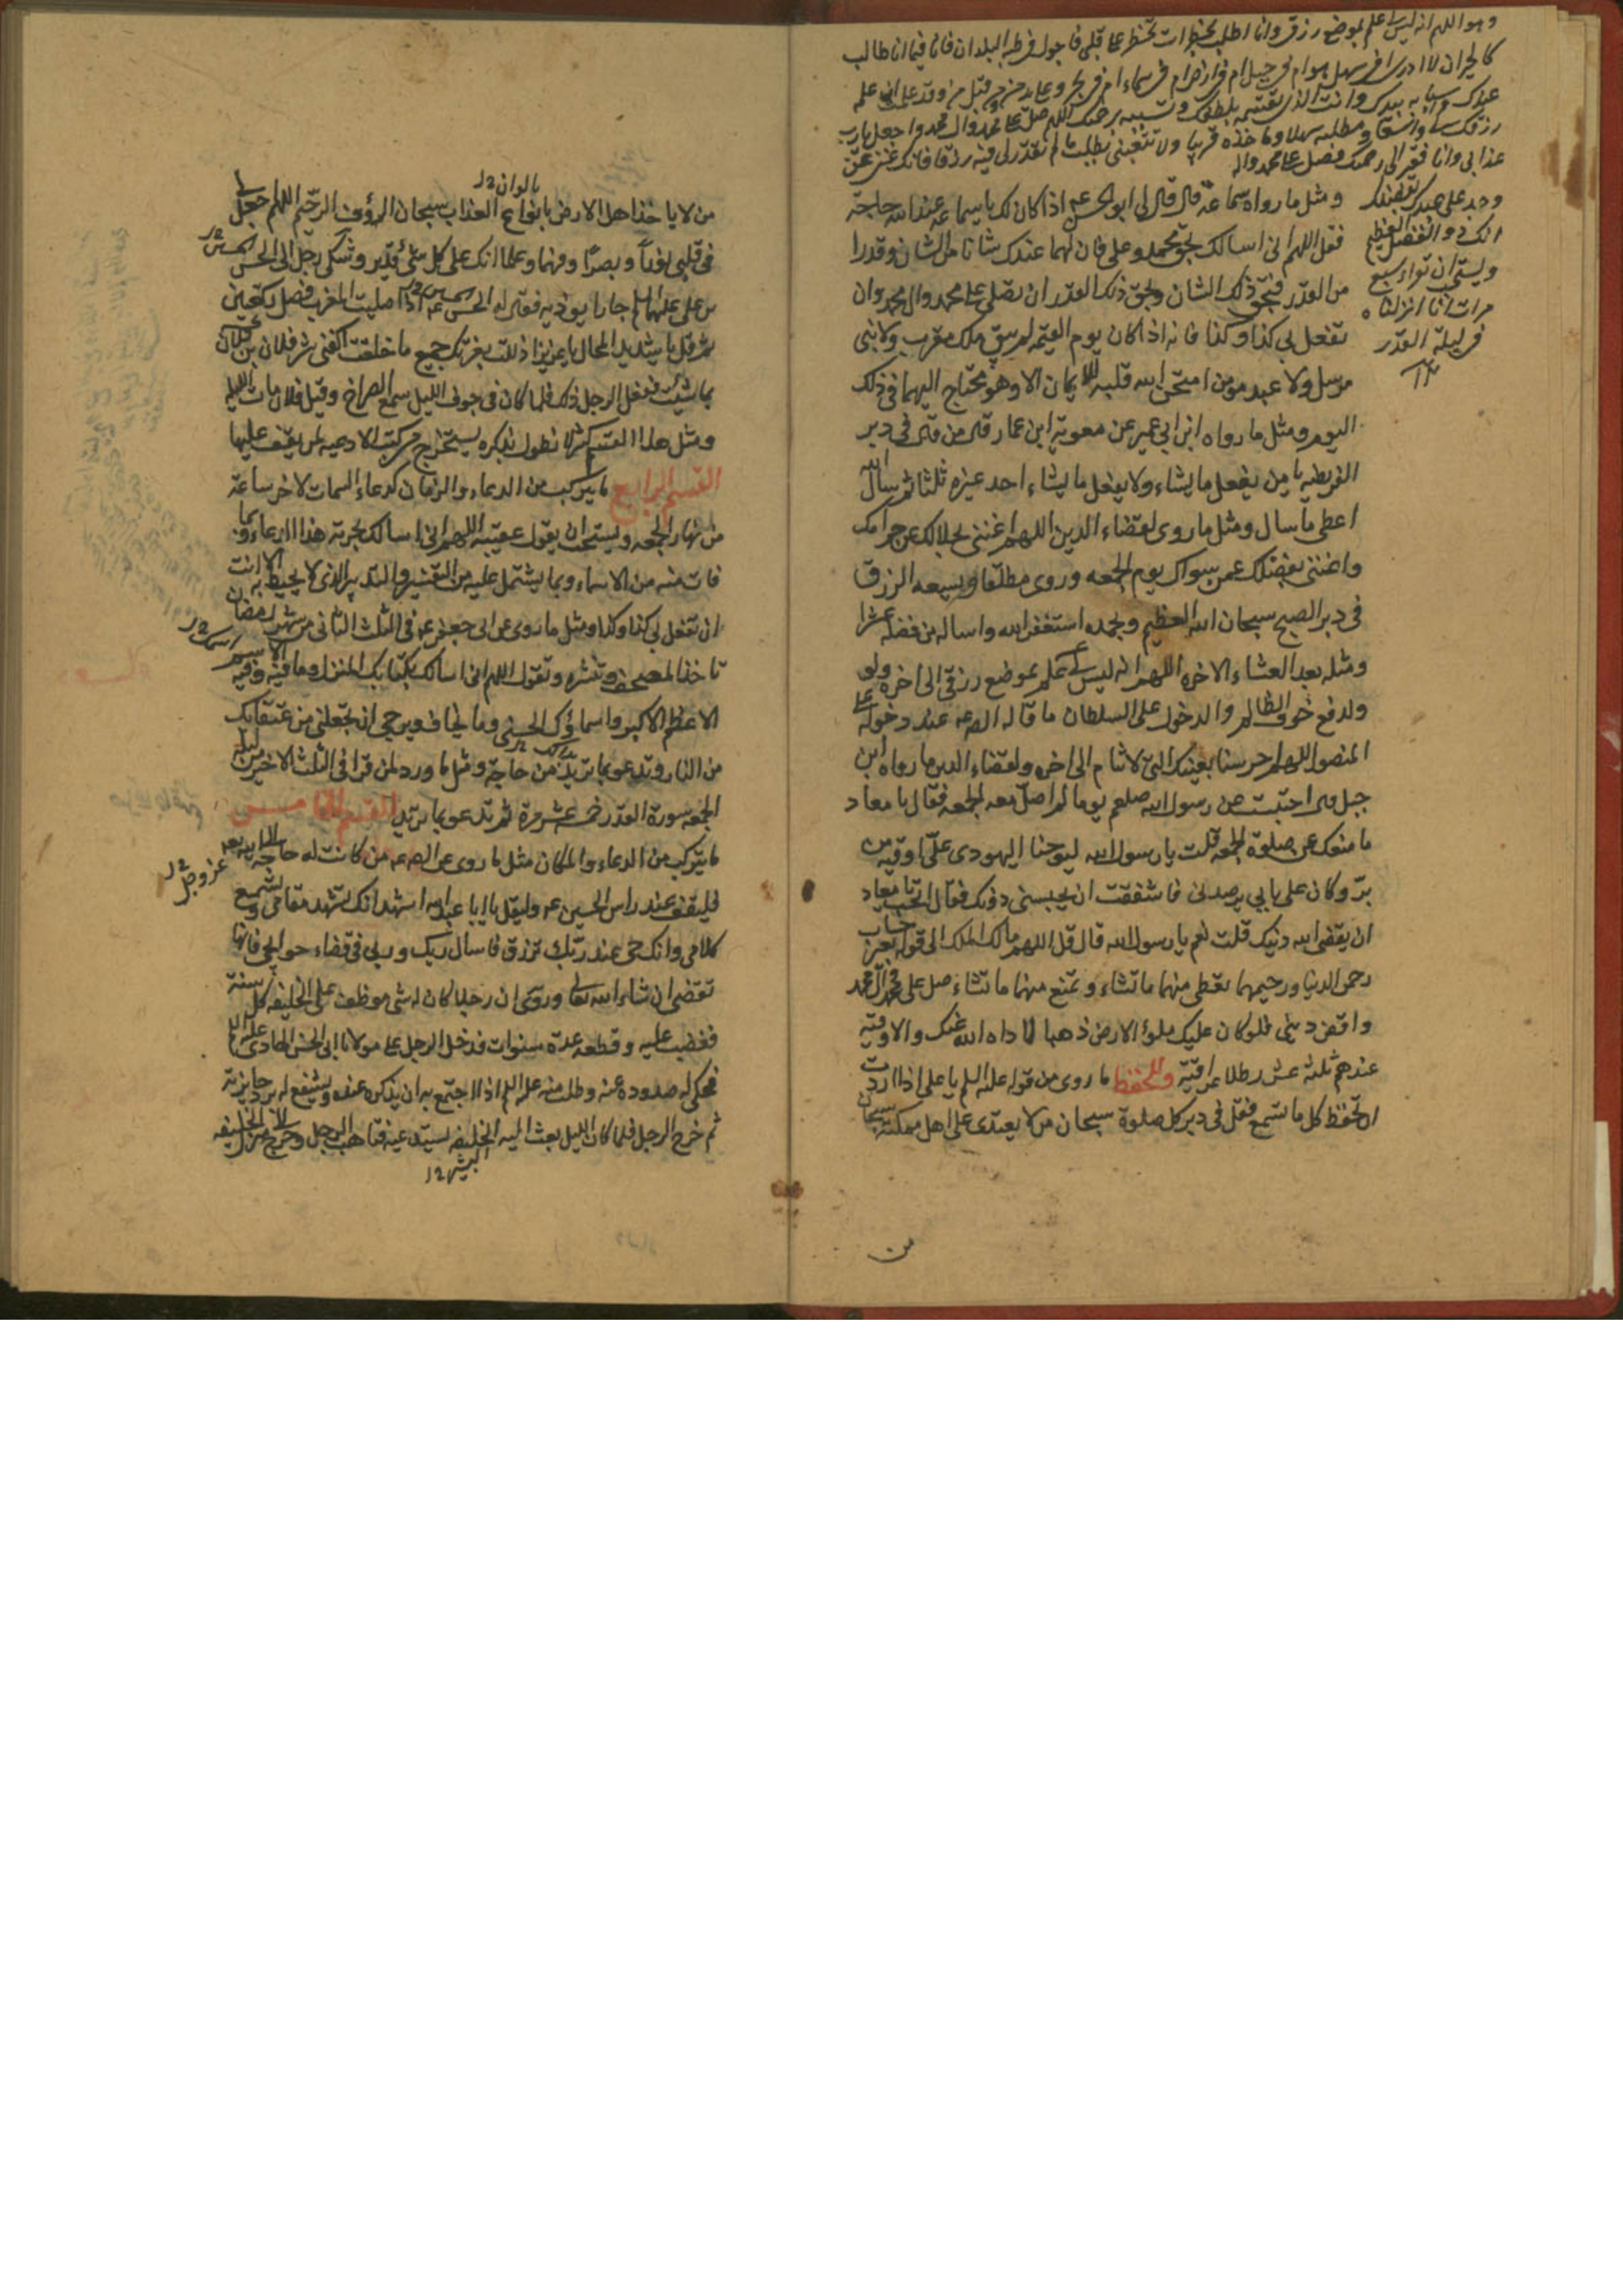 وهو اللهم انه ليس لي علم بموضع رزقي وانا اطلبه بخطرات تخطر على قلبي فاجول في طلبه البلدان فانا فيما انا طالب
كالحيران لا ادري افي سهل هو ام في جبل ام في ارض ام في سماء ام في بر وعلى يد من ومن قبل من وقد علمت ان علمه
عندك واسبابه بيدك وانت الذي تقسمه بلطفك وتسببه برحمتك اللهم صل على محمد وال محمد واجعل يا رب
رزقك لي واسعا ومطلبه سهلا وماخذه قريبا ولا تعنني بطلب ما لم تقدر لي فيه رزقا فانك غني عن
عذابي وانا فقير الى رحمتك فصل على محمد واله
وجد على عبدك بفضلك
انك ذو الفضل العظيم
ويستحب ان تقراء سبع
مرات انا انزلناه
في ليلة القدر
ومثل ما رواه سماعة قال قال لي ابو الحسن ع اذا كان لك يا سماعة عند الله حاجة
فقل اللهم اني اسالك بحق محمد وعلي فان لهما عندك شانا من الشان وقدرا
من القدر فبحق ذلك الشان وبحق ذلك القدر ان تصلي على محمد وال محمد وان
تفعل بي كذا وكذا فانه اذا كان يوم القيمه لم يبق ملك مقرب ولا نبي
مرسل ولا عبد مومن امتحن الله قلبه للايمان الا وهو محتاج اليهما في ذلك
اليوم ومثل ما رواه ابن ابي عمير عن معوية ابن عمار قال من قال في دبر
الفريضه يا من يفعل ما يشاء ولا يفعل ما يشاء احد غيره ثلثا ثم سال الله
اعطى ما سال ومثل ما روى لقضاء الدين اللهم اغنني بحلالك عن حرامك
واغنني بفضلك عمن سواك يوم الجمعه وروى مطلقا ولسعه الرزق
في دبر الصبح سبحان الله العظيم وبحمده استغفر الله واساله من فضله عشرا
ومثله بعد العشاء الاخره اللهم انه ليس لي علم بموضع رزقي الى اخره
ولدفع خوف الظالم والدخول على السلطان ما قاله الص ع عند دخوله على
المنصور اللهم احرسنا بعينك التي لا تنام الى اخره ولقضاء الدين ما رواه ابن
جبل قال احتبست عن رسول الله صلعم يوما لم اصل معه الجمعه فقال يا معاد
ما منعك عن صلوة الجمعه قلت يا رسول الله ليوحنا اليهودي علي اوقيه من
بر وكان على بابي يرصدني فاشفقت ان يحبسني دونك فقال اتحب يا معاد
ان يقضي الله دينك قلت نعم يا رسول الله قال قل اللهم مالك الملك الى قوله بغير حساب
رحمن الدنيا ورحيمهما تعطي منهما ما تشاء وتمنع منهما ما تشاء صل على محمد وال محمد
واقض ديني فلو كان عليك ملؤ الارض ذهبا لاداه الله عنك والاوقيه
عندهم ثلثة عشر رطلا عراقية وللحفظ ما روى من قوله عليه السلم يا علي اذا اردت
ان تحفظ كل ما تسمع فقل في دبر كل صلوة سبحان من لا يعتدي على اهل مملكته سبحان
من
بالوان
من لا ياخذ اهل الارض بانواع العذاب سبحان الرؤف الرحيم اللهم اجعل لي
في قلبي نورا وبصرا وفهما وعلما انك على كل شئ قدير وشكى رجل الى الحسن
بن علي عليهما السلم جارا يوذيه فقال له الحسن ع اذا صليت المغرب فصل ركعتين
ثم قل يا شديد المحال يا عزيزا ذللت بعزتك جميع ما خلقت اكفني شر فلان بن فلان
بما شئت ففعل الرجل ذلك فلما كان في جوف الليل سمع الصراخ وقيل فلان مات الليله
ومثل هذا القسم كثير لا نطول بذكره يستخرج من كتب الادعيه لمن يقف عليها
القسم الرابع ما يتركب من الدعاء والزمان كدعاء السمات لاخر ساعة
من نهار الجمعه ويستحب ان يقول عقيبه اللهم اني اسالك بحرمة هذا الدعاء وبما
فات منه من الاسماء وبما يشتمل عليه من التفسير والتدبير الذي لا يحيط به الا انت
ان تفعل بي كذا وكذا ومثل ما روى عن ابي جعفر ع في الثلث الثاني من شهر رمضان
تاخذ المصحف وتنشره وتقول اللهم اني اسالك بكتابك المنزل وما فيه وفيه
الاعظم الاكبر واسماؤك الحسنى وما يخاف ويرجى ان تجعلني من عتقائك
من النار وتدعو بما تريد من حاجة ومثل ما ورد لمن قرا في الثلث الاخير من ليلة
الجمعه سورة القدر خمسة عشر مرة ثم تدعو بما تريد القسم الخامس
ما يتركب من الدعاء والمكان مثل ما روى عن الص ع من كانت له حاجة الى الله
عز وجل
فليقف عند راس الحسين ع وليقل يا ابا عبد الله اشهد انك تشهد مقامي وتسمع
كلامي وانك حي عند ربك ترزق فاسال ربك وربي في قضاء حوائجي فانها
تقضى ان شاء الله تعالى وروى ان رجلا كان له شي موظف على الخليفه كل سنة
فغضب عليه وقطعه عدة سنوات فدخل الرجل على مولانا ابي الحسن الهادي عليه السلم
فحكى له صدوده عنه وطلب منه عليه السلم اذا اجتمع به ان يذكره عنده ويشفع له برد جايزته
ثم خرج الرجل فلما كان الليل بعث اليه الخليفه يستدعيه فتاهب الرجل وخرج الى منزل الخليفه